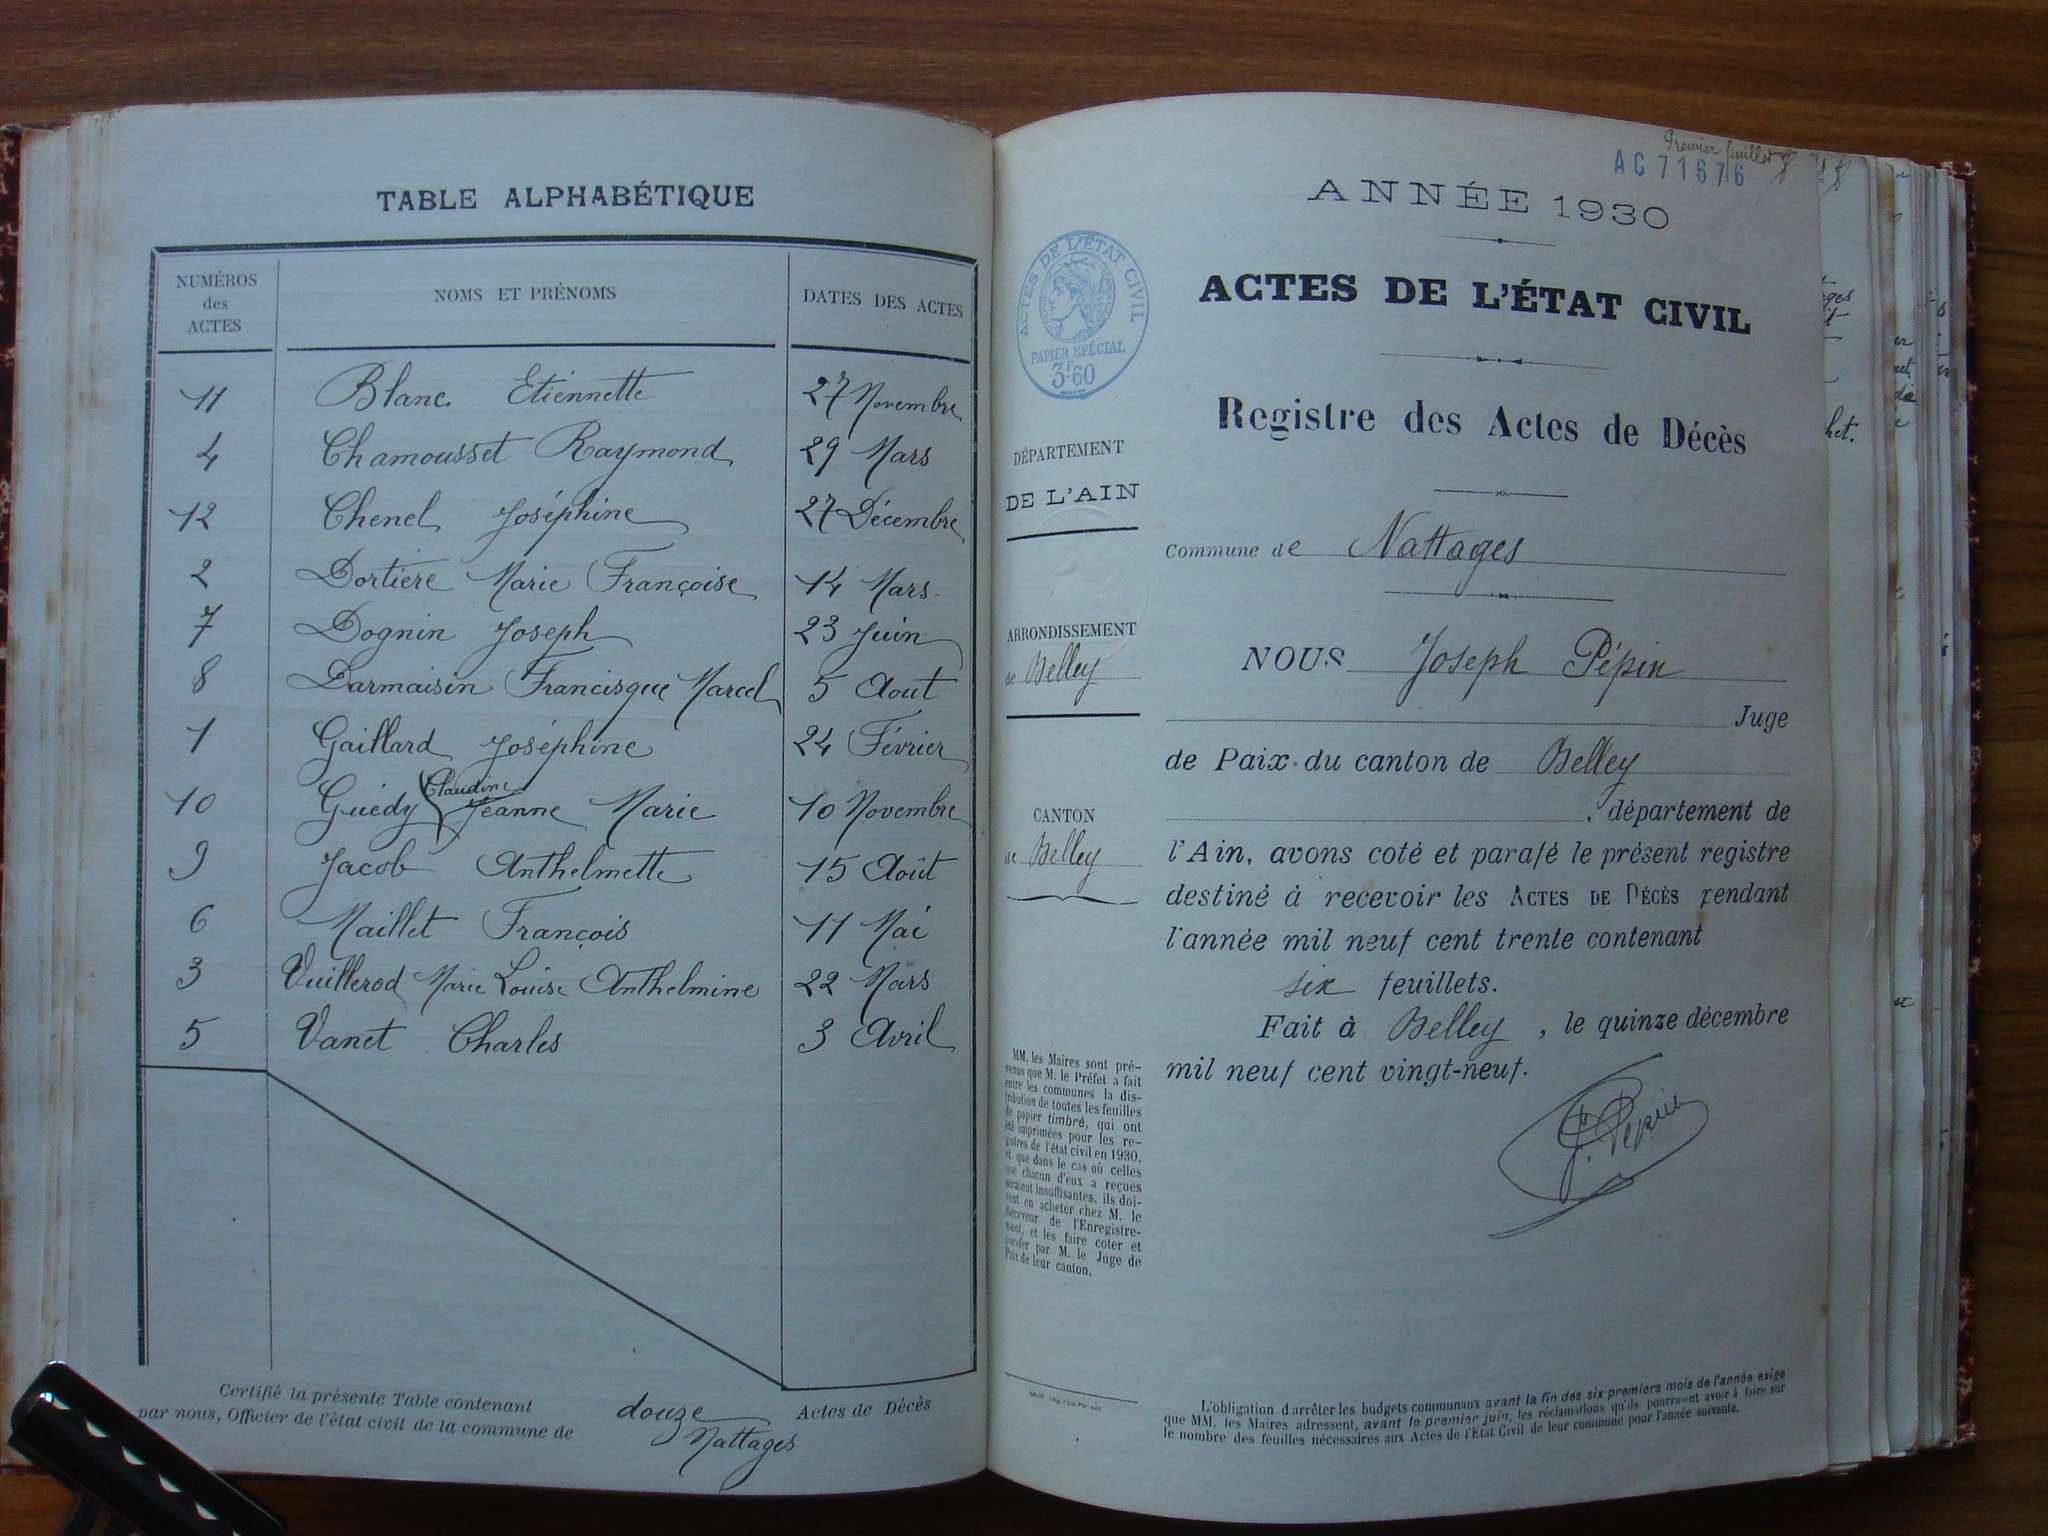 TABLE ALPHABÉTIQUE
NUMÉROS
des
ACTES
NOMS ET PRÉNOMS
DATES DES ACTES
11 Blanc Etiennette 27 Novembre
4 Chamousset Raymond 29 Mars
12 Chenel Joséphine 27 Décembre
2 Dortière Marie Françoise 14 Mars
7 Dognin Joseph 23 Juin
8 Darmaisin Francisque Marcel 5 Aout
1 Gaillard Joséphine 24 Février
Claudine
10 Guédy Jeanne Marie 10 Novembre
9 Jacob Anthelmette 15 Août
6 Maillet François 11 Mai
3 Vuillerod Marie Louise Anthelmine 22 Mars
5 Vanet Charles 3 Avril
Certifié la présente Table contenant douze Actes de Décès
par nous, Officier de l'état civil de la commune de Nattages
Premier feuillet
AC 71676
ANNÉE 1930
ACTES DE L'ÉTAT CIVIL
PAPIER SPÉCIAL
3F60
ACTES DE L'ÉTAT CIVIL
Registre des Actes de Décès
DÉPARTEMENT
DE L'AIN
ARRONDISSEMENT
de Belley
CANTON
de Belley
MM. les Maires sont pré-
venus que M. le Préfet a fait
entre les communes la dis-
tribution de toutes les feuilles
de papier timbré, qui ont
été imprimées pour les re-
gistres de l'état civil en 1930,
et que dans le cas où celles
que chacun d'eux a reçues
seraient insuffisantes, ils doi-
vent en acheter chez M. le
Receveur de l'Enregistre-
ment, et les faire coter et
parafer par M. le Juge de
Paix de leur canton.
Commune de Nattages
NOUS Joseph Pépin
Juge
de Paix du canton de Belley
, département de
l'Ain, avons coté et parafé le présent registre
destiné à recevoir les ACTES DE DÉCÈS pendant
l'année mil neuf cent trente contenant
six feuillets.
Fait à Belley, le quinze décembre
mil neuf cent vingt-neuf.
J. Pépin
L'obligation d'arrêter les budgets communaux avant la fin des six premiers mois de l'année exige
que MM. les Maires adressent, avant le premier juin, les réclamations qu'ils pourraient avoir à faire sur
le nombre des feuilles nécessaires aux Actes de l'Etat Civil de leur commune pour l'année suivante.